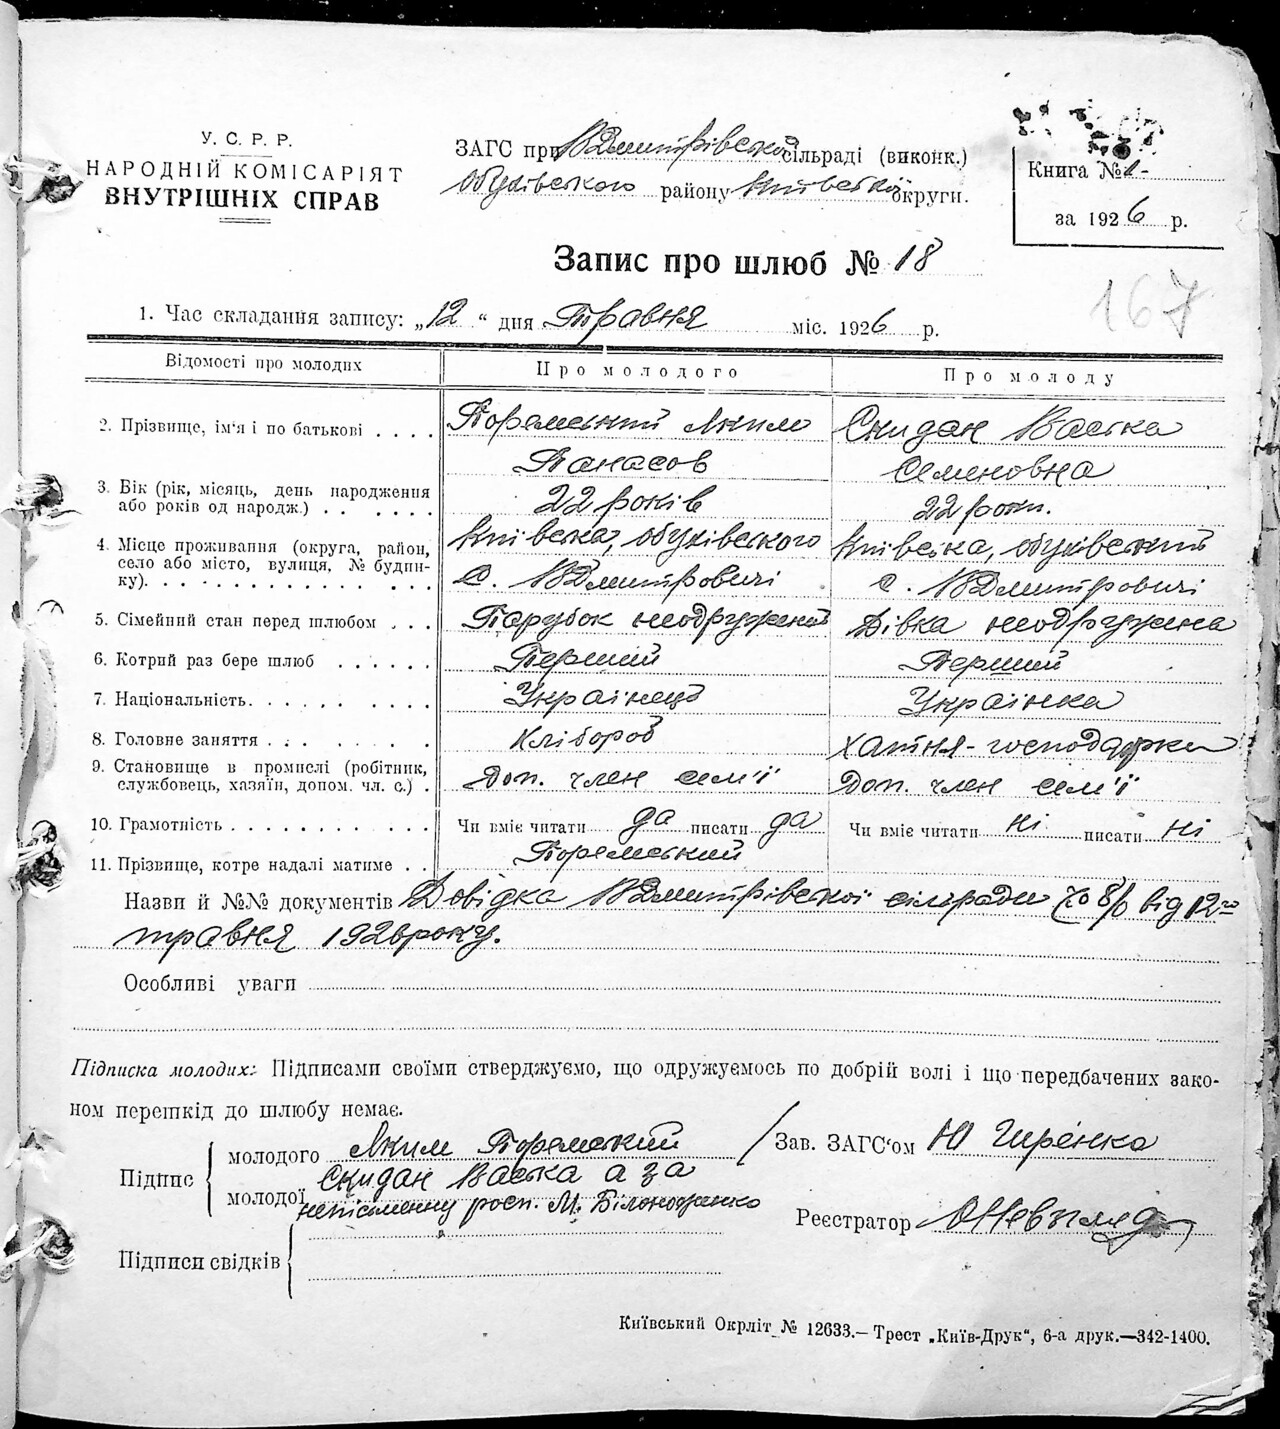 У. С. Р. Р.
НАРОДНІЙ КОМІСАРІЯТ
ВНУТРІШНІХ СПРАВ
ЗАГС при ВДмитрівській сільраді (виконк.)
Обухівського району Київської округи.
Книга № 1-
за 1926 р.
Запис про шлюб № 18
167
1. Час складання запису: „12“ дня Травня міс. 1926 р.
Відомості про молодих Про молодого Про молоду
2. Прізвище, ім'я і по батькові . . . . Поремський Яким Скидан Васька
Панасов Семеновна
3. Вік (рік, місяць, день народження
або років од народж.) . . . . . . . 22 років 22 роки.
4. Місце проживання (округа, район,
село або місто, вулиця, № будин-
ку). Київська, обухівського Київська, обухівський
с. ВДмитровичі с. ВДмитровичі
5. Сімейний стан перед шлюбом . . . Парубок неодружений Дівка неодружена
6. Котрий раз бере шлюб . . . . . . Перший Перший
7. Національність. . . . . . . . . . Українець Українка
8. Головне заняття . . . . . . . . Хлібороб хатня-господарка
9. Становище в промислі (робітник,
службовець, хазяїн, допом. чл. с.) . Доп. член сем'ї Доп. член сем'ї
10. Грамотність . . . . . . . . . . . Чи вміє читати да писати да Чи вміє читати ні писати ні
11. Прізвище, котре надалі матиме . . Поремський
Назви й №№ документів Довідка ВДмитрівської сільради від 12го
травня 1926 року.
Особливі уваги
Підписка молодих: Підписами своїми стверджуємо, що одружуємось по добрій волі і що передбачених зако-
ном перешкід до шлюбу немає.
Підпис
молодого Яким Поремский
молодої Скидан Васька а за
неписьменну росп. М. Білоноженко
Зав. ЗАГС'ом
Реєстратор
Підписи свідків
Київський Окрліт № 12633.— Трест „Київ-Друк“, 6-а друк.—342-1400.